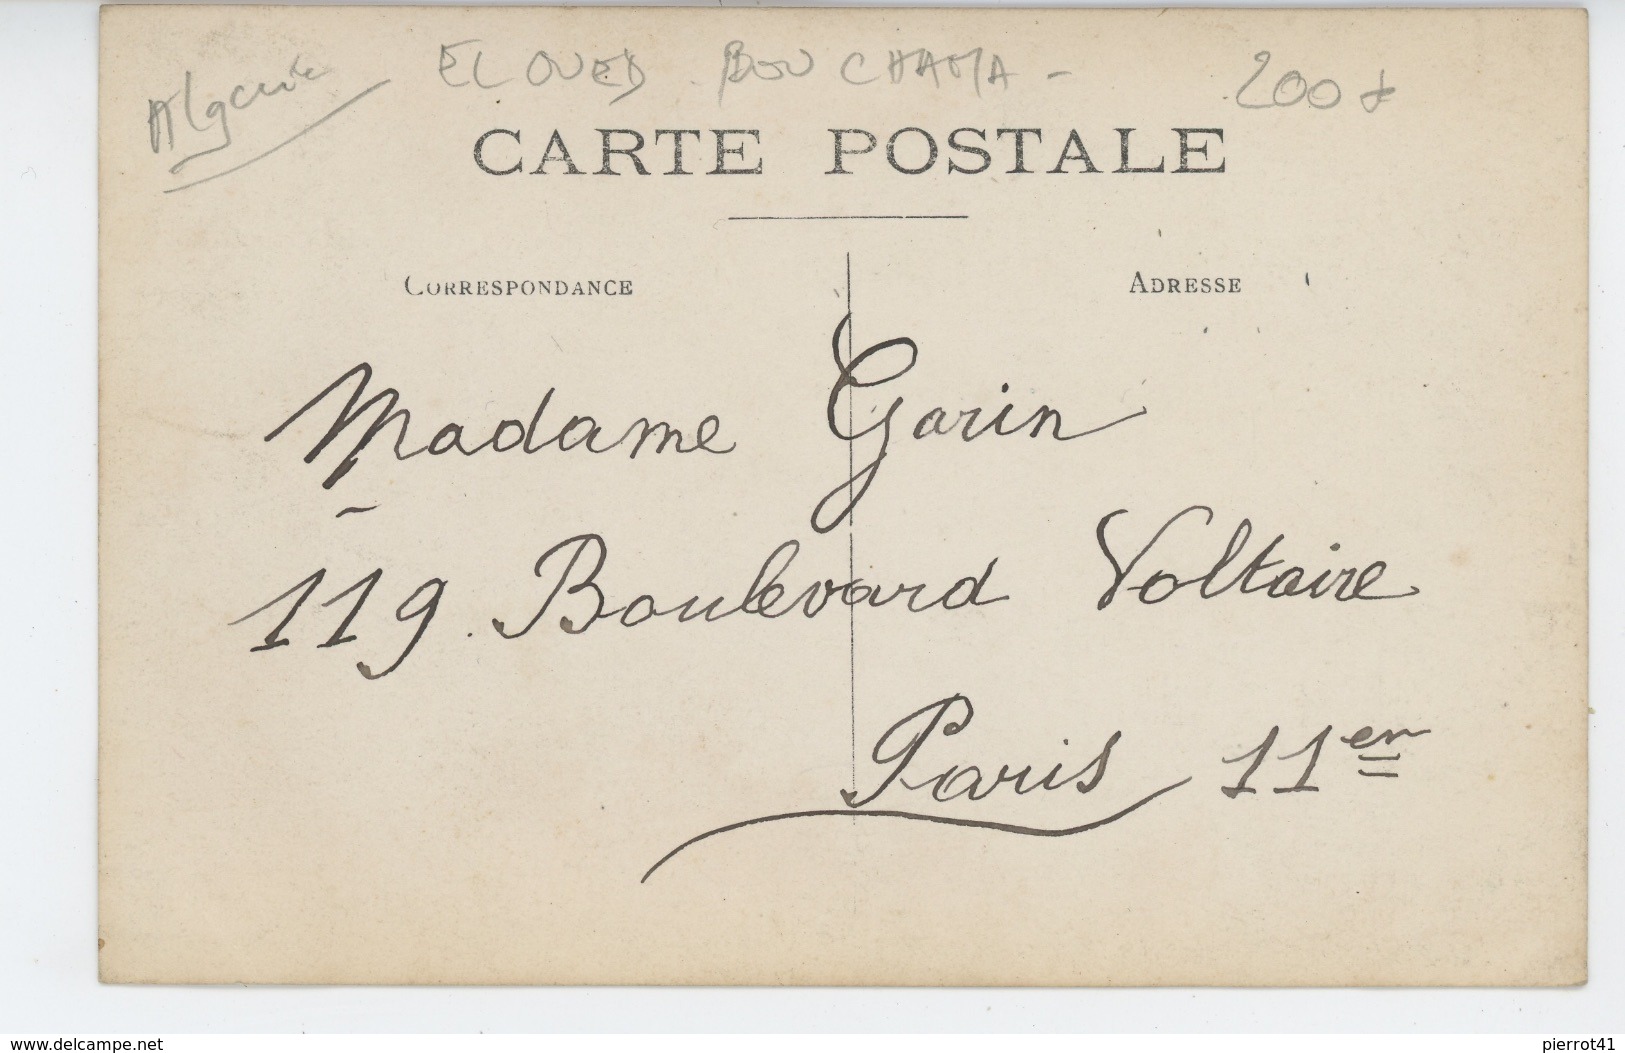 Algérie EL OUED BOU CHAMA - 200
CARTE POSTALE
CORRESPONDANCE ADRESSE
Madame Garin
119. Boulevard Voltaire
Paris 11en
www.delcampe.net pierrot41